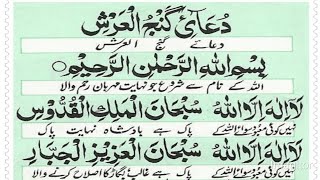 دُعَائے گَنْجُ الْعَرْش
دعائے گنج العرش
بِسْمِ اللّٰهِ الرَّحْمٰنِ الرَّحِيْمِ
اللہ کے نام سے شروع جو نہایت مہربان رحم والا
لَآ اِلٰهَ اِلَّا اللّٰهُ سُبْحَانَ الْمَلِكِ الْقُدُّوْسِ
نہیں کوئی معبود سوا اللہ کے پاک ہے بادشاہ نہایت پاک
لَآ اِلٰهَ اِلَّا اللّٰهُ سُبْحَانَ الْعَزِيْزِ الْجَبَّارِ
نہیں کوئی معبود سوا اللہ کے پاک ہے غالب بگاڑ کا اصلاح کرنے والا